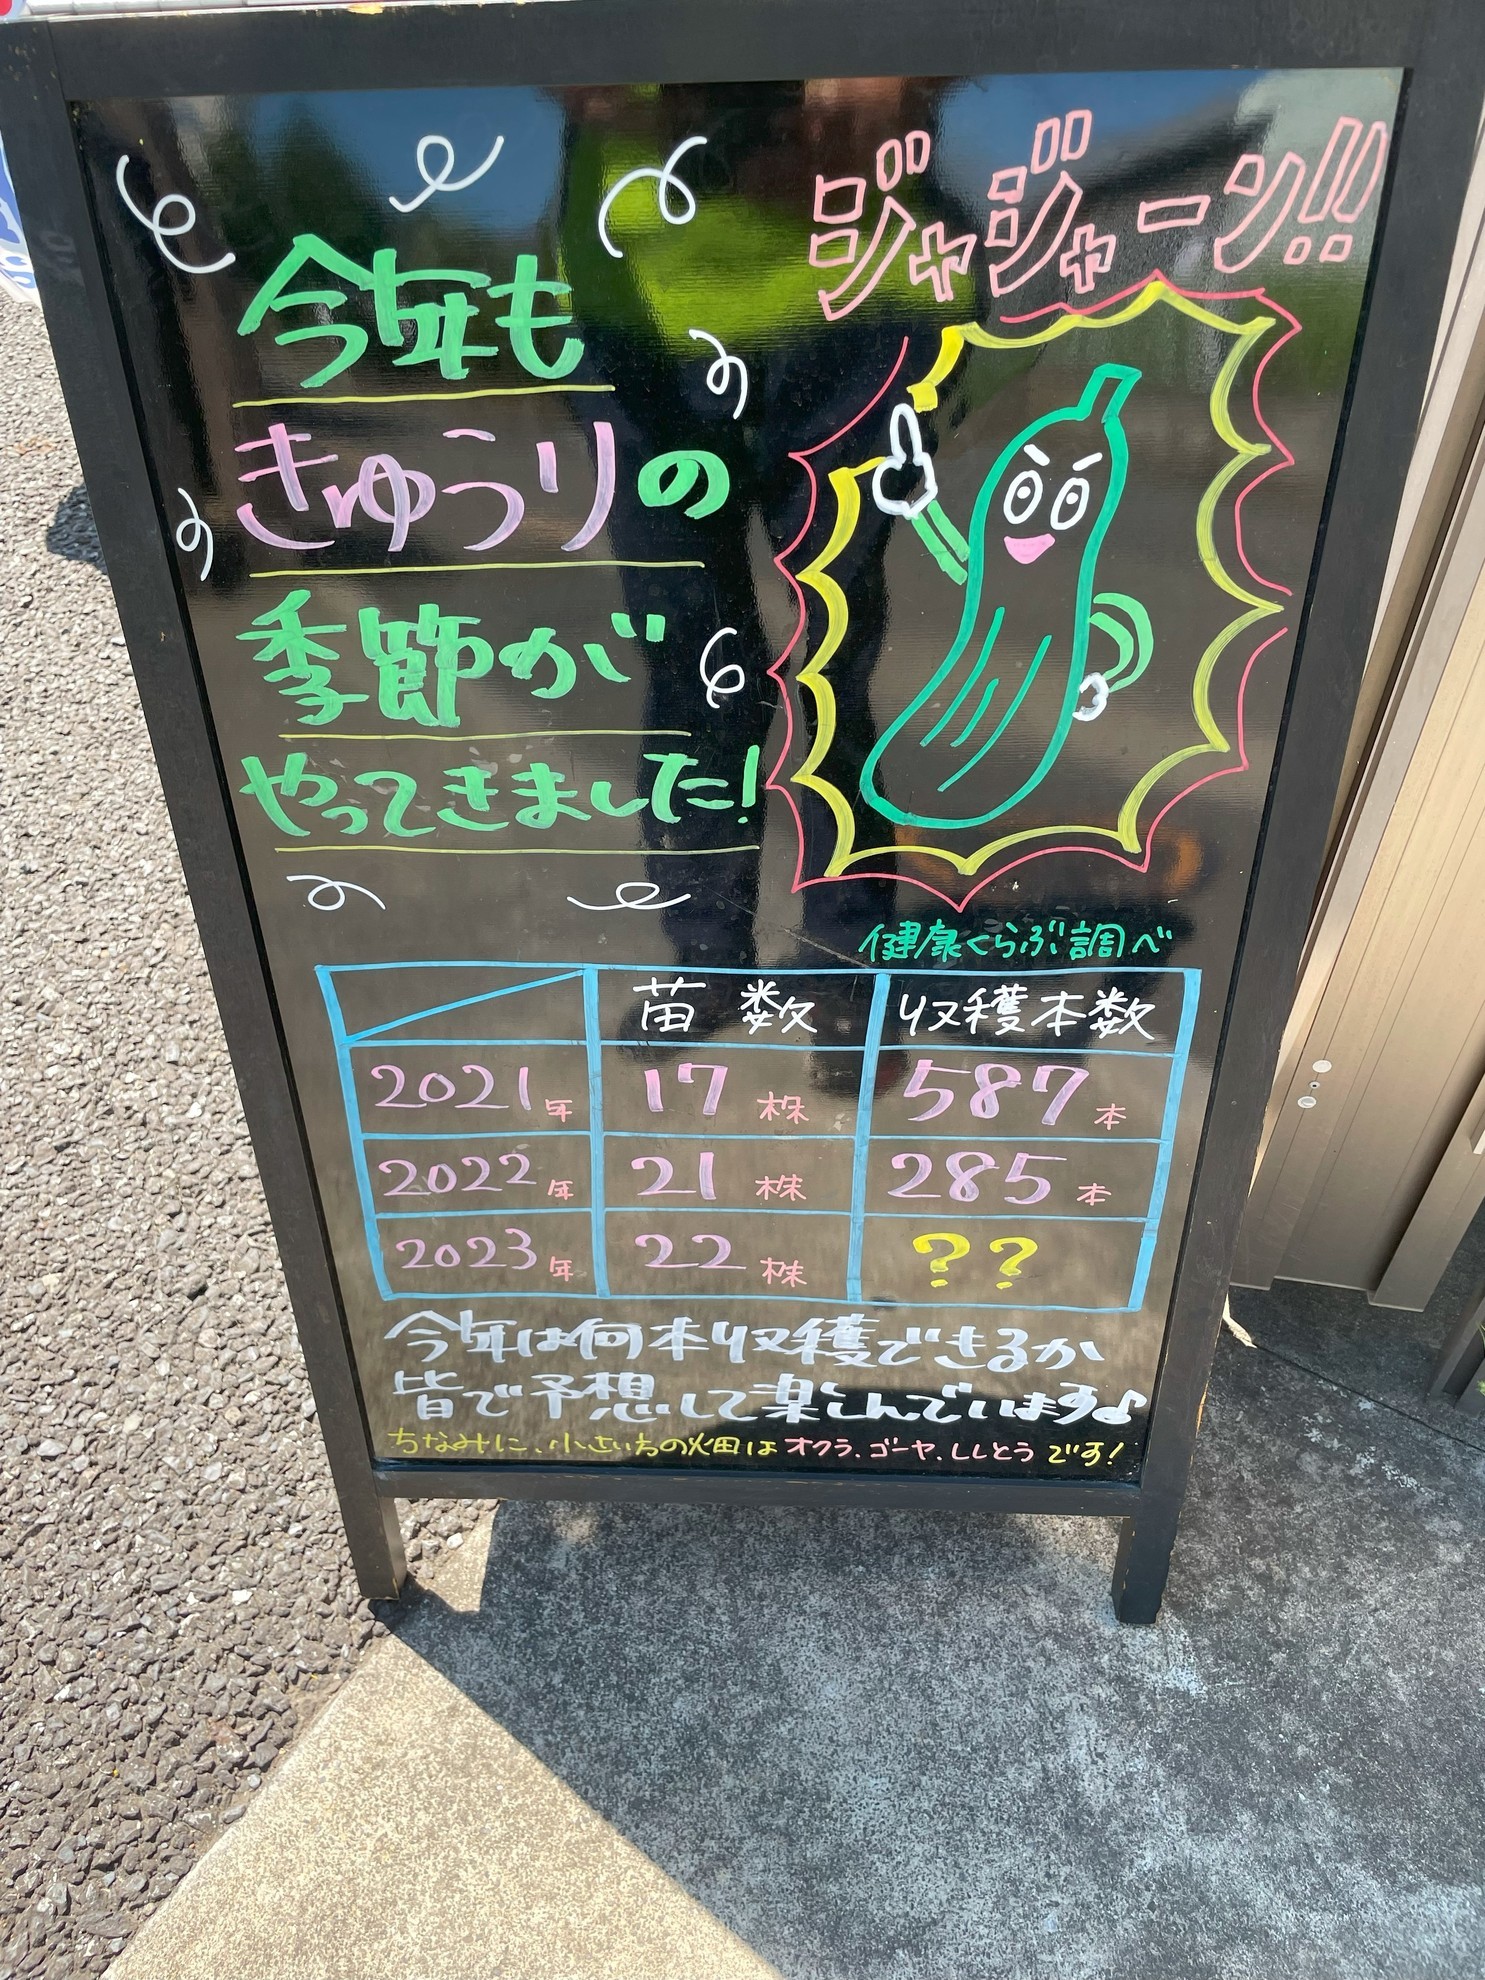 ジャジャーン!!
今年も
きゅうりの
季節が
やってきました!
健康くらぶ調べ
苗数 収穫本数
2021年 17株 587本
2022年 21株 285本
2023年 22株 ??
今年は何本収穫できるか
皆で予想して楽しんでいます♪
ちなみに、小さい方の畑はオクラ、ゴーヤ、ししとうです!